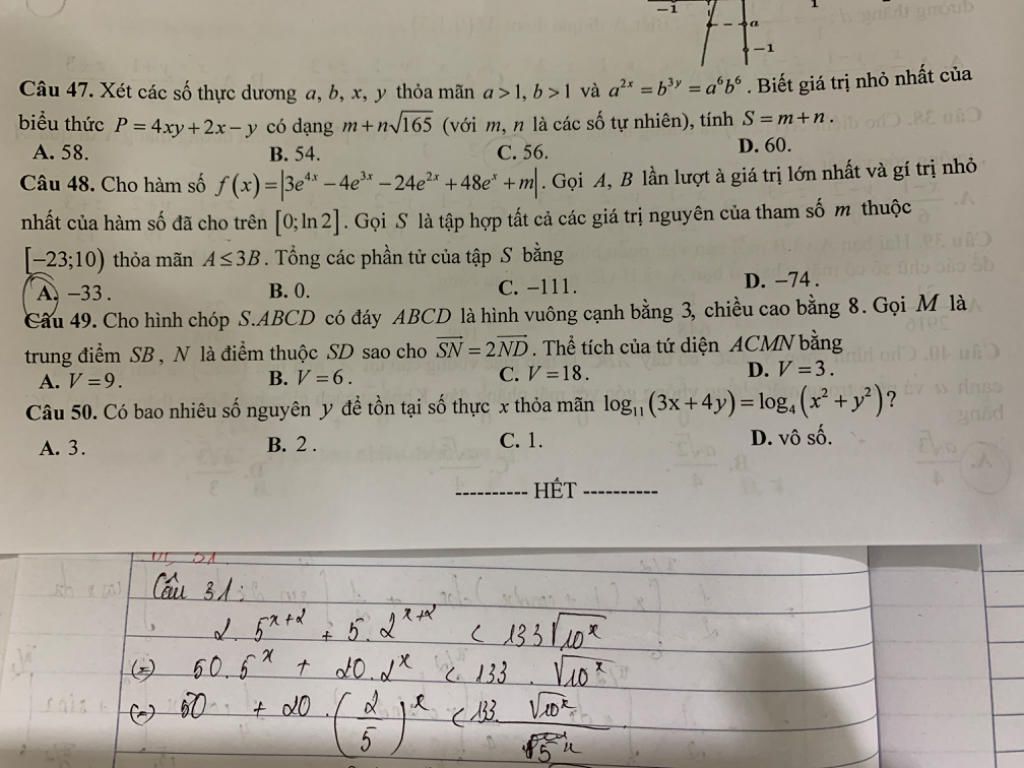 -1
a
1
-1
Câu 47. Xét các số thực dương a, b, x, y thỏa mãn a > 1, b > 1 và a^{2x} = b^{3y} = a^6b^6. Biết giá trị nhỏ nhất của
biểu thức P = 4xy + 2x − y có dạng m + n√165 (với m, n là các số tự nhiên), tính S = m + n.
A. 58. B. 54. C. 56. D. 60.
Câu 48. Cho hàm số f(x) = |3e^{4x} − 4e^{3x} − 24e^{2x} + 48e^x + m|. Gọi A, B lần lượt à giá trị lớn nhất và gí trị nhỏ
nhất của hàm số đã cho trên [0; ln 2]. Gọi S là tập hợp tất cả các giá trị nguyên của tham số m thuộc
[−23;10) thỏa mãn A ≤ 3B. Tổng các phần tử của tập S bằng
A. −33. B. 0. C. −111. D. −74.
Câu 49. Cho hình chóp S.ABCD có đáy ABCD là hình vuông cạnh bằng 3, chiều cao bằng 8. Gọi M là
trung điểm SB, N là điểm thuộc SD sao cho \overrightarrow{SN} = 2\overrightarrow{ND}. Thể tích của tứ diện ACMN bằng
A. V = 9. B. V = 6. C. V = 18. D. V = 3.
Câu 50. Có bao nhiêu số nguyên y để tồn tại số thực x thỏa mãn log_{11}(3x + 4y) = log_4(x^2 + y^2)?
A. 3. B. 2. C. 1. D. vô số.
---------- HẾT ----------
Câu 31:
2. 5^{x+2} + 5. 2^{x+2} < 133√10^x
(=) 50. 5^x + 20. 2^x < 133. √10^x
(=) 50 + 20. (2/5)^x < 133. √10^x / 5^x